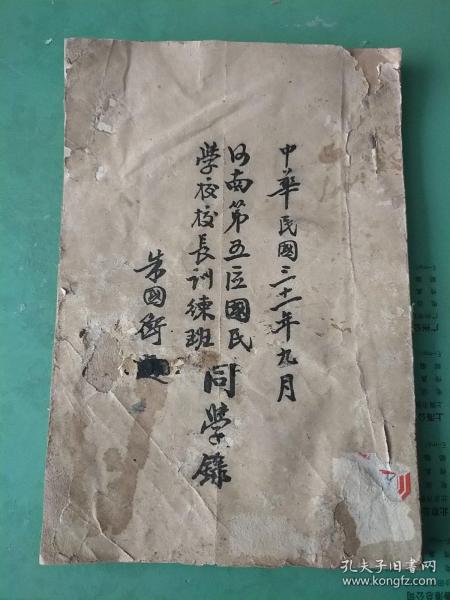 中華民國三十一年九月
河南第五区國民
學校校長训練班
同學錄
朱國衡題
孔夫子旧书网
www.kongfz.com